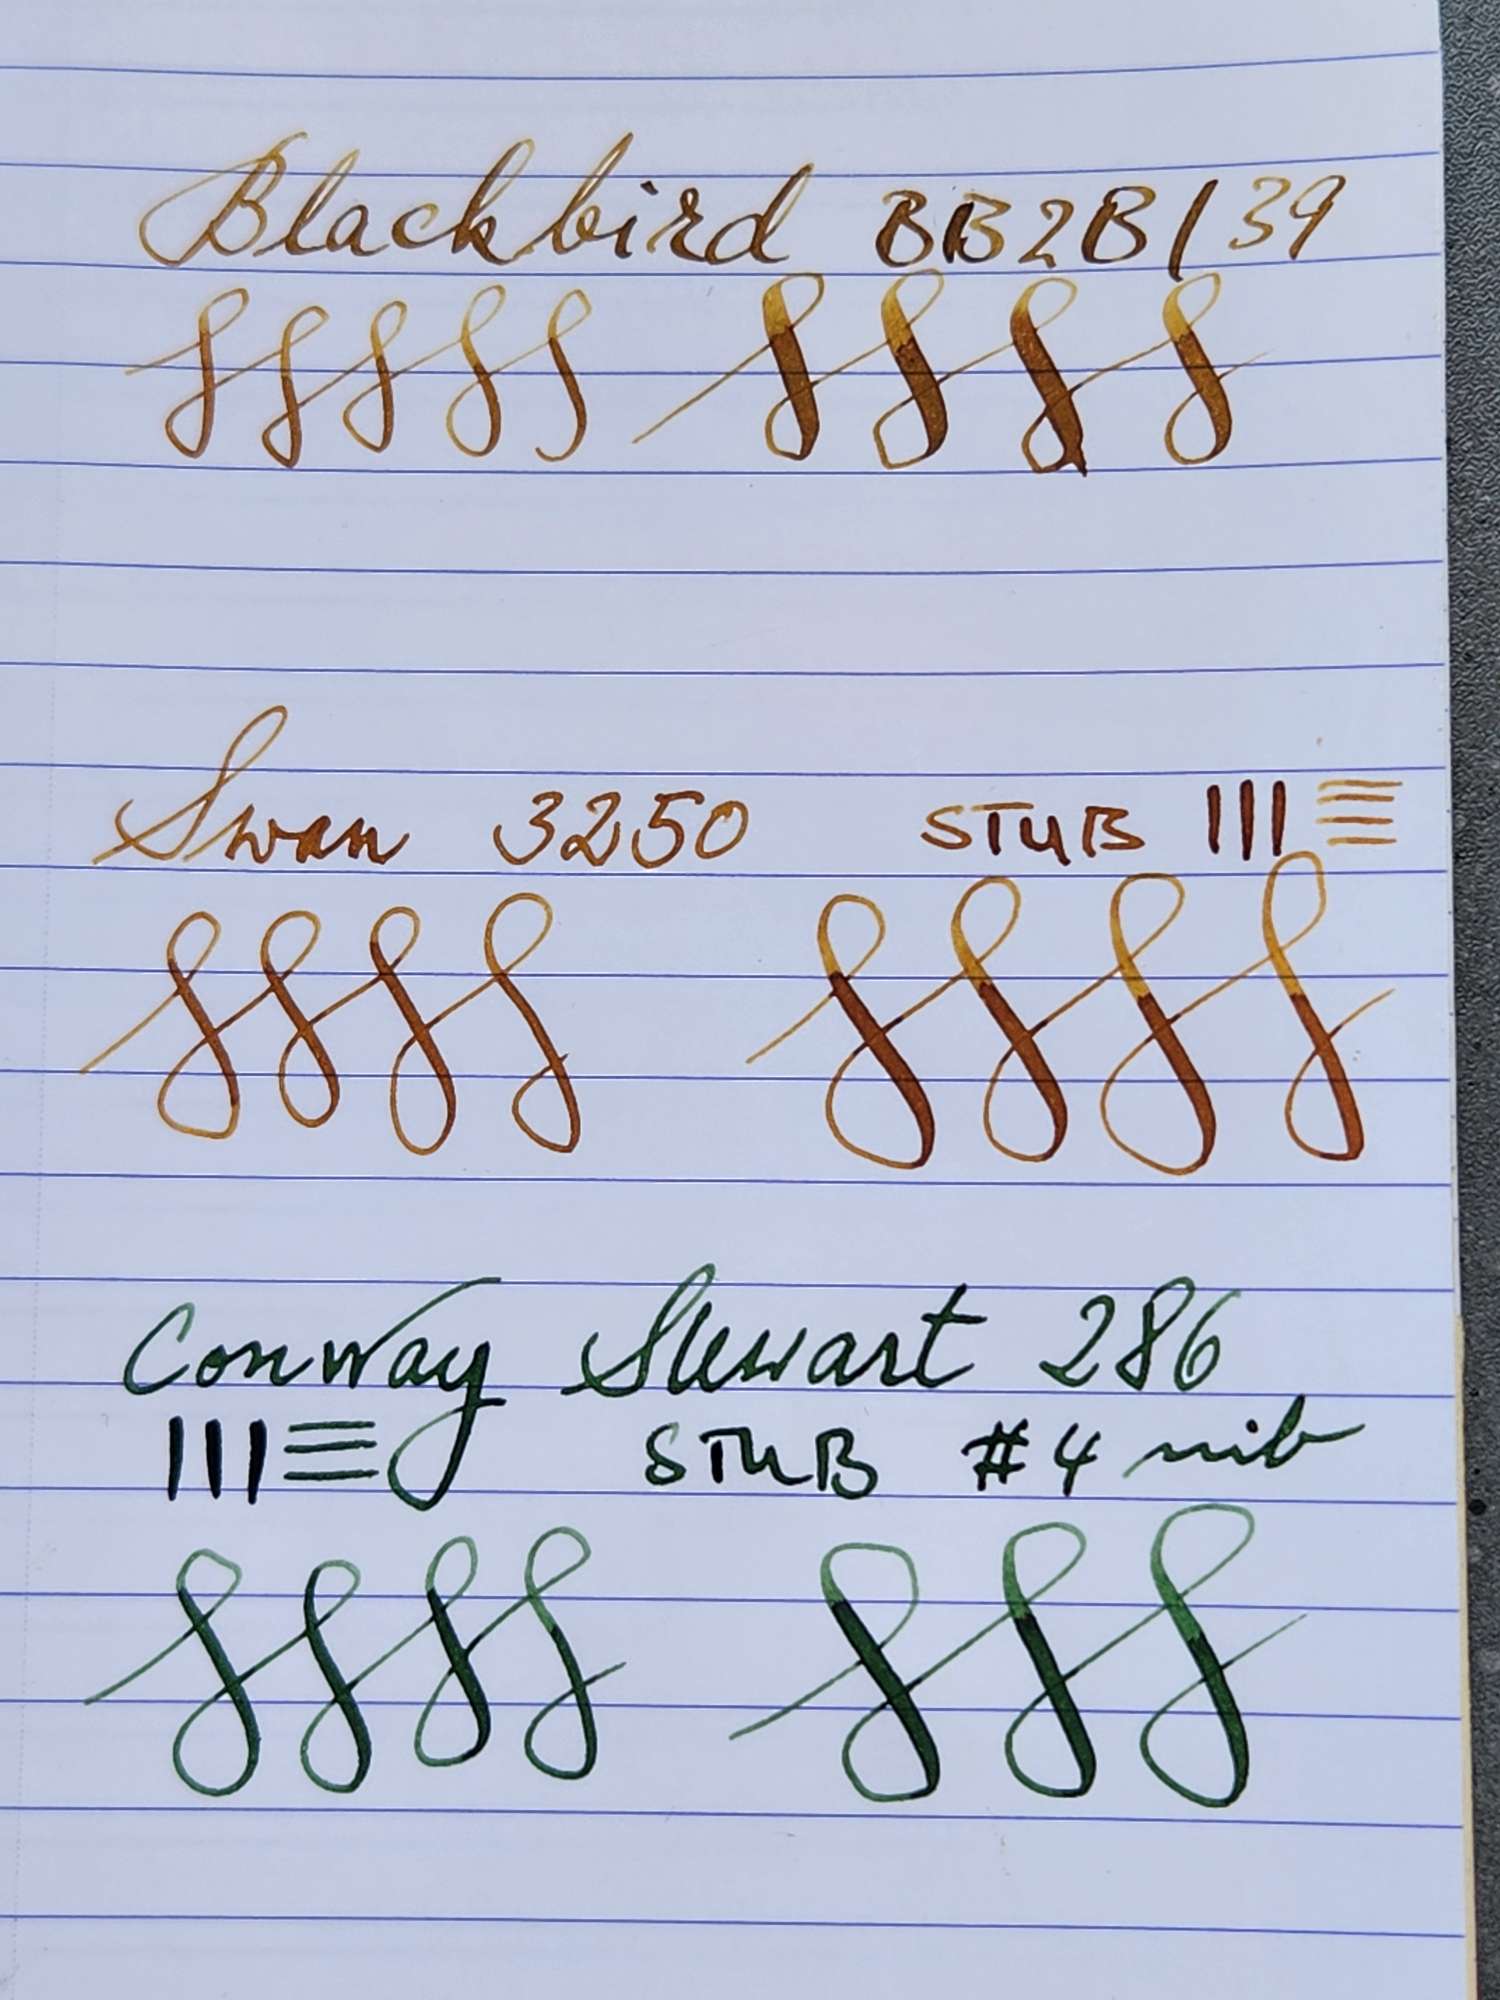 Blackbird BB2B/39
Swan 3250 STUB
Conway Stewart 286
STUB #4 nib